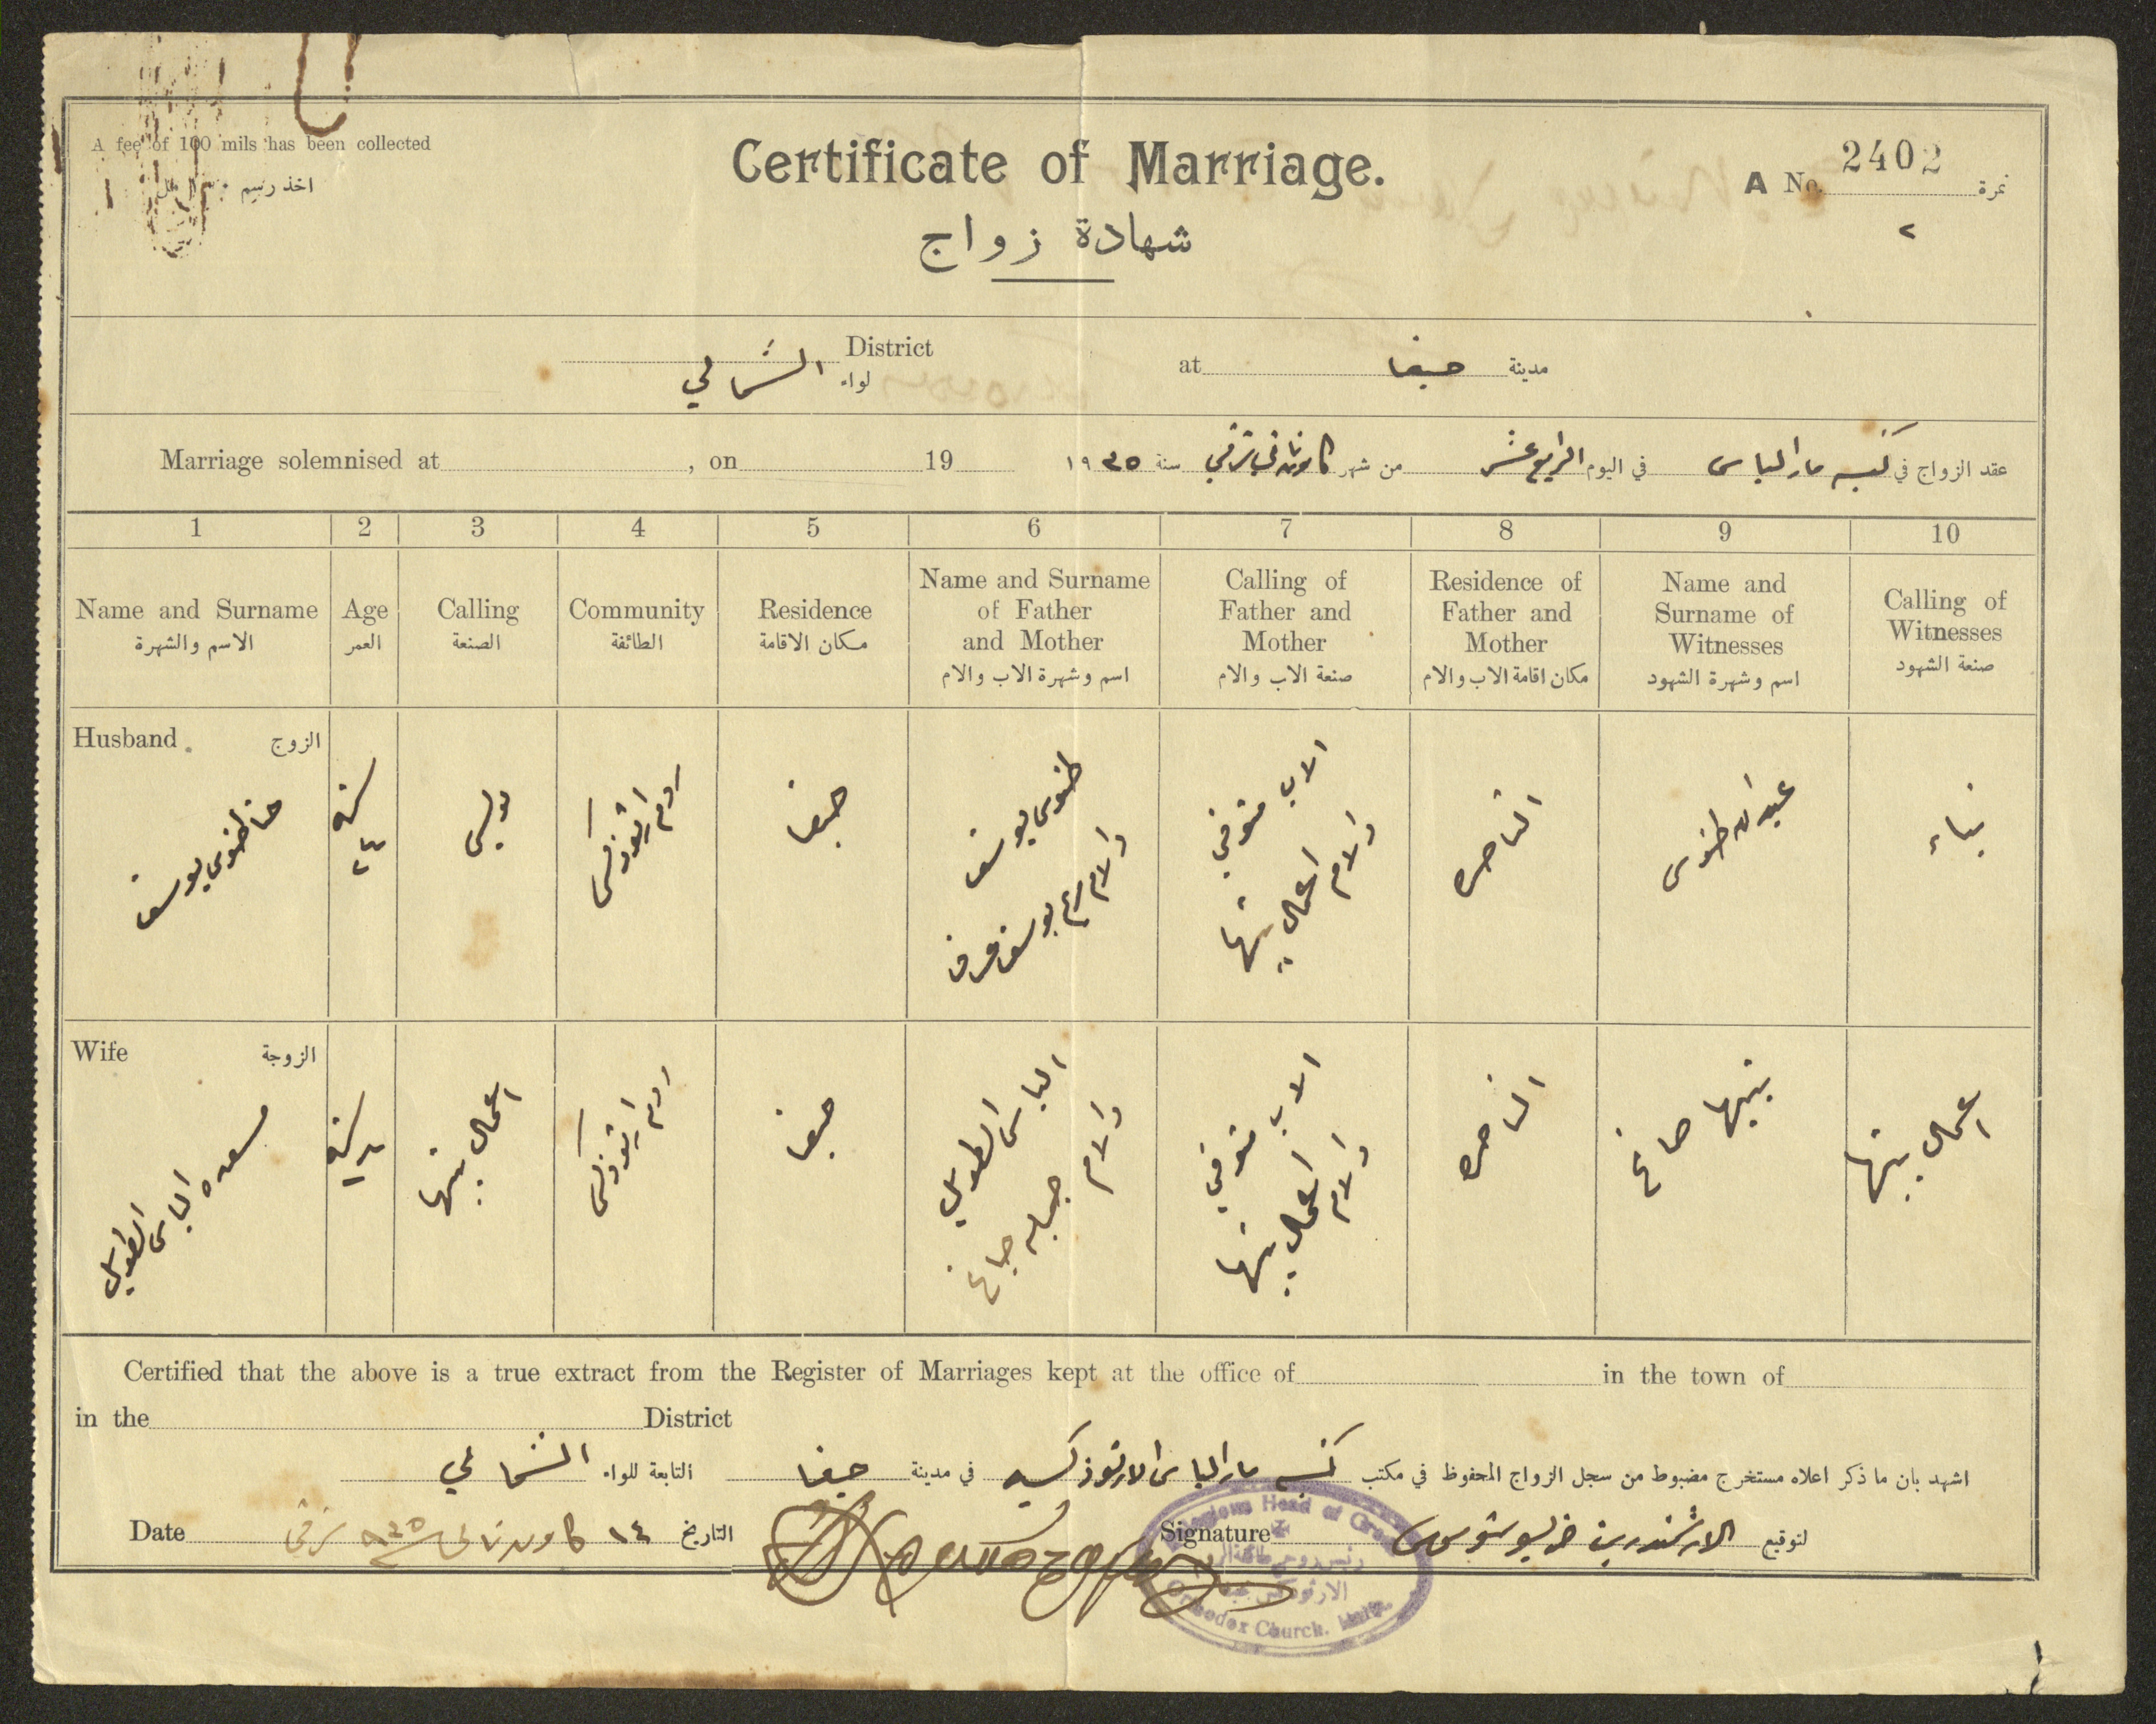 A fee of 100 mils has been collected
اخذ رسم
Certificate of Marriage.
شهادة زواج
A No. 2402 نمرة
٢
District
لواء الشمالي
at حيفا مدينة
Marriage solemnised at , on 19
عقد الزواج في كنيسة مار الياس في اليوم الرابع عشر من شهر كانون ثاني شرقي سنة ١٩٣٥
1 2 3 4 5 6 7 8 9 10
Name and Surname
الاسم والشهرة
Age
العمر
Calling
الصنعة
Community
الطائفة
Residence
مكان الاقامة
Name and Surname
of Father
and Mother
اسم وشهرة الاب والام
Calling of
Father and
Mother
صنعة الاب والام
Residence of
Father and
Mother
مكان اقامة الاب والام
Name and
Surname of
Witnesses
اسم وشهرة الشهود
Calling of
Witnesses
صنعة الشهود
Husband الزوج
حنا طنوس يوسف
سنة
٢٤
بوليس
روم ارثوذكس
حيفا
طنوس يوسف
والام مريم يوسف
الاب متوفي
والام اعمال بيتها
الناصره
عبدالله طنوس
بناء
Wife الزوجة
مسعده الياس الطويل
سنة
اعمال بيتها
روم ارثوذكس
حيفا
الياس الطويل
والام جميله صباغ
الاب متوفي
والام اعمال بيتها
الناصره
اعمال بيتها
Certified that the above is a true extract from the Register of Marriages kept at the office of in the town of
in the District
اشهد بان ما ذكر اعلاه مستخرج مضبوط من سجل الزواج المحفوظ في مكتب كنيسة مار الياس الارثوذكسيه في مدينة حيفا التابعة للواء الشمالي
Date التاريخ ١٤ كانون ثاني سنة ٩٣٥ شرقي
Signature لتوقيع الارشمندريت خريسوستوموس
Religious Head of Greek
رئيس روحي طائفة الروم
الارثوذكس بحيفا
Orthodox Church. Haifa.